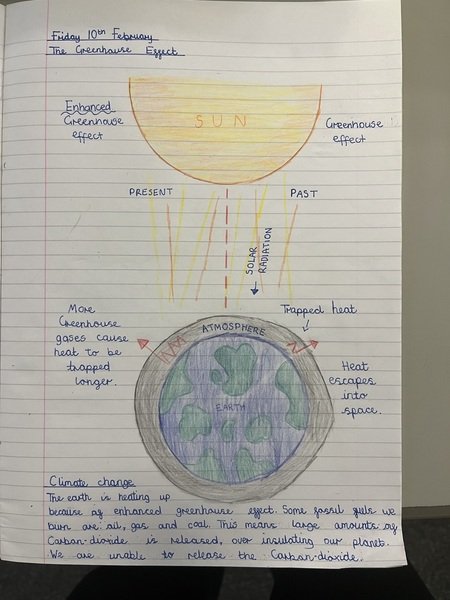 Friday 10th February
The Greenhouse Effect
Enhanced
Greenhouse
effect
SUN
Greenhouse
effect
PRESENT
PAST
SOLAR
RADIATION
More
Greenhouse
gases cause
heat to be
trapped
longer.
ATMOSPHERE
Trapped heat
Heat
escapes
into
space.
EARTH
Climate change
The earth is heating up
because of enhanced greenhouse effect. Some fossil fuels we
burn are: oil, gas and coal. This means large amounts of
Carbon-dioxide is released, over insulating our planet.
We are unable to release the Carbon-dioxide.